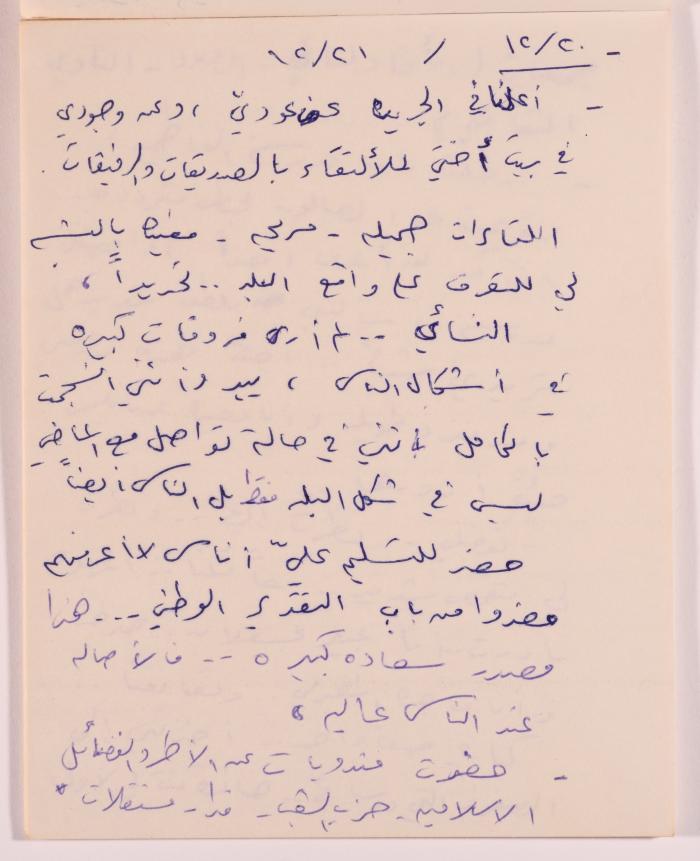 - ١٢/٢٠ / ١٢/٢١
- أعلنا في الجريده عن عودتي ، وعن وجودي
في بيت أختي للألتقاء بالصديقات والرفيقات .
اللقاءات جميله - مريحه - مفيده بالنسبه
لي للتعرف على واقع البلد .. تحديداً ،
النسائي .. لم أرى فروقات كبيره
في أشكال الناس ، يبدو أنني انسجمت
بالكامل لأنني في حالة تواصل مع الماضي
ليس في شكل البلد فقط بل الناس أيضاً
حضر للتسليم عليّ أناس لا أعرفهم
حضروا من باب التقدير الوطني ... هذا
مصدر سعاده كبيره .. فالأصاله
عند الناس عاليه ،
- حضرت مندوبات عن الأطر والفصائل
الاسلاميه - حزب الشعب - فدا - مستقلات